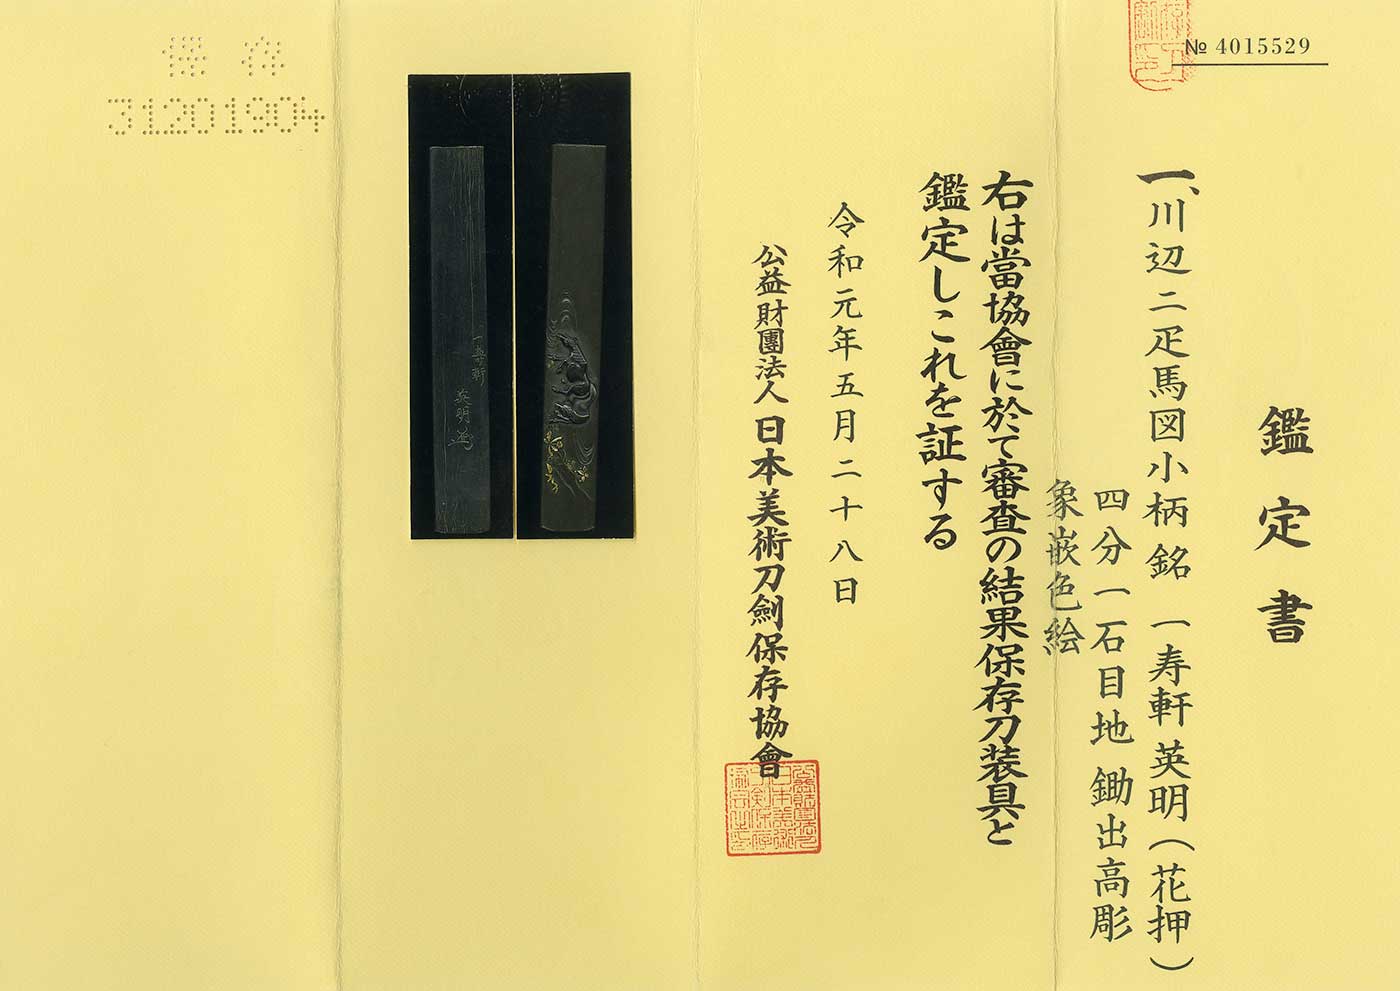 № 4015529
鑑定書
一、川辺二疋馬図小柄 銘 一寿軒英明(花押)
四分一石目地 鋤出高彫
象嵌色絵
右は當協會に於て審査の結果保存刀装具と
鑑定しこれを証する
令和元年五月二十八日
公益財團法人 日本美術刀劍保存協會
一寿軒
英明
保存
31201904